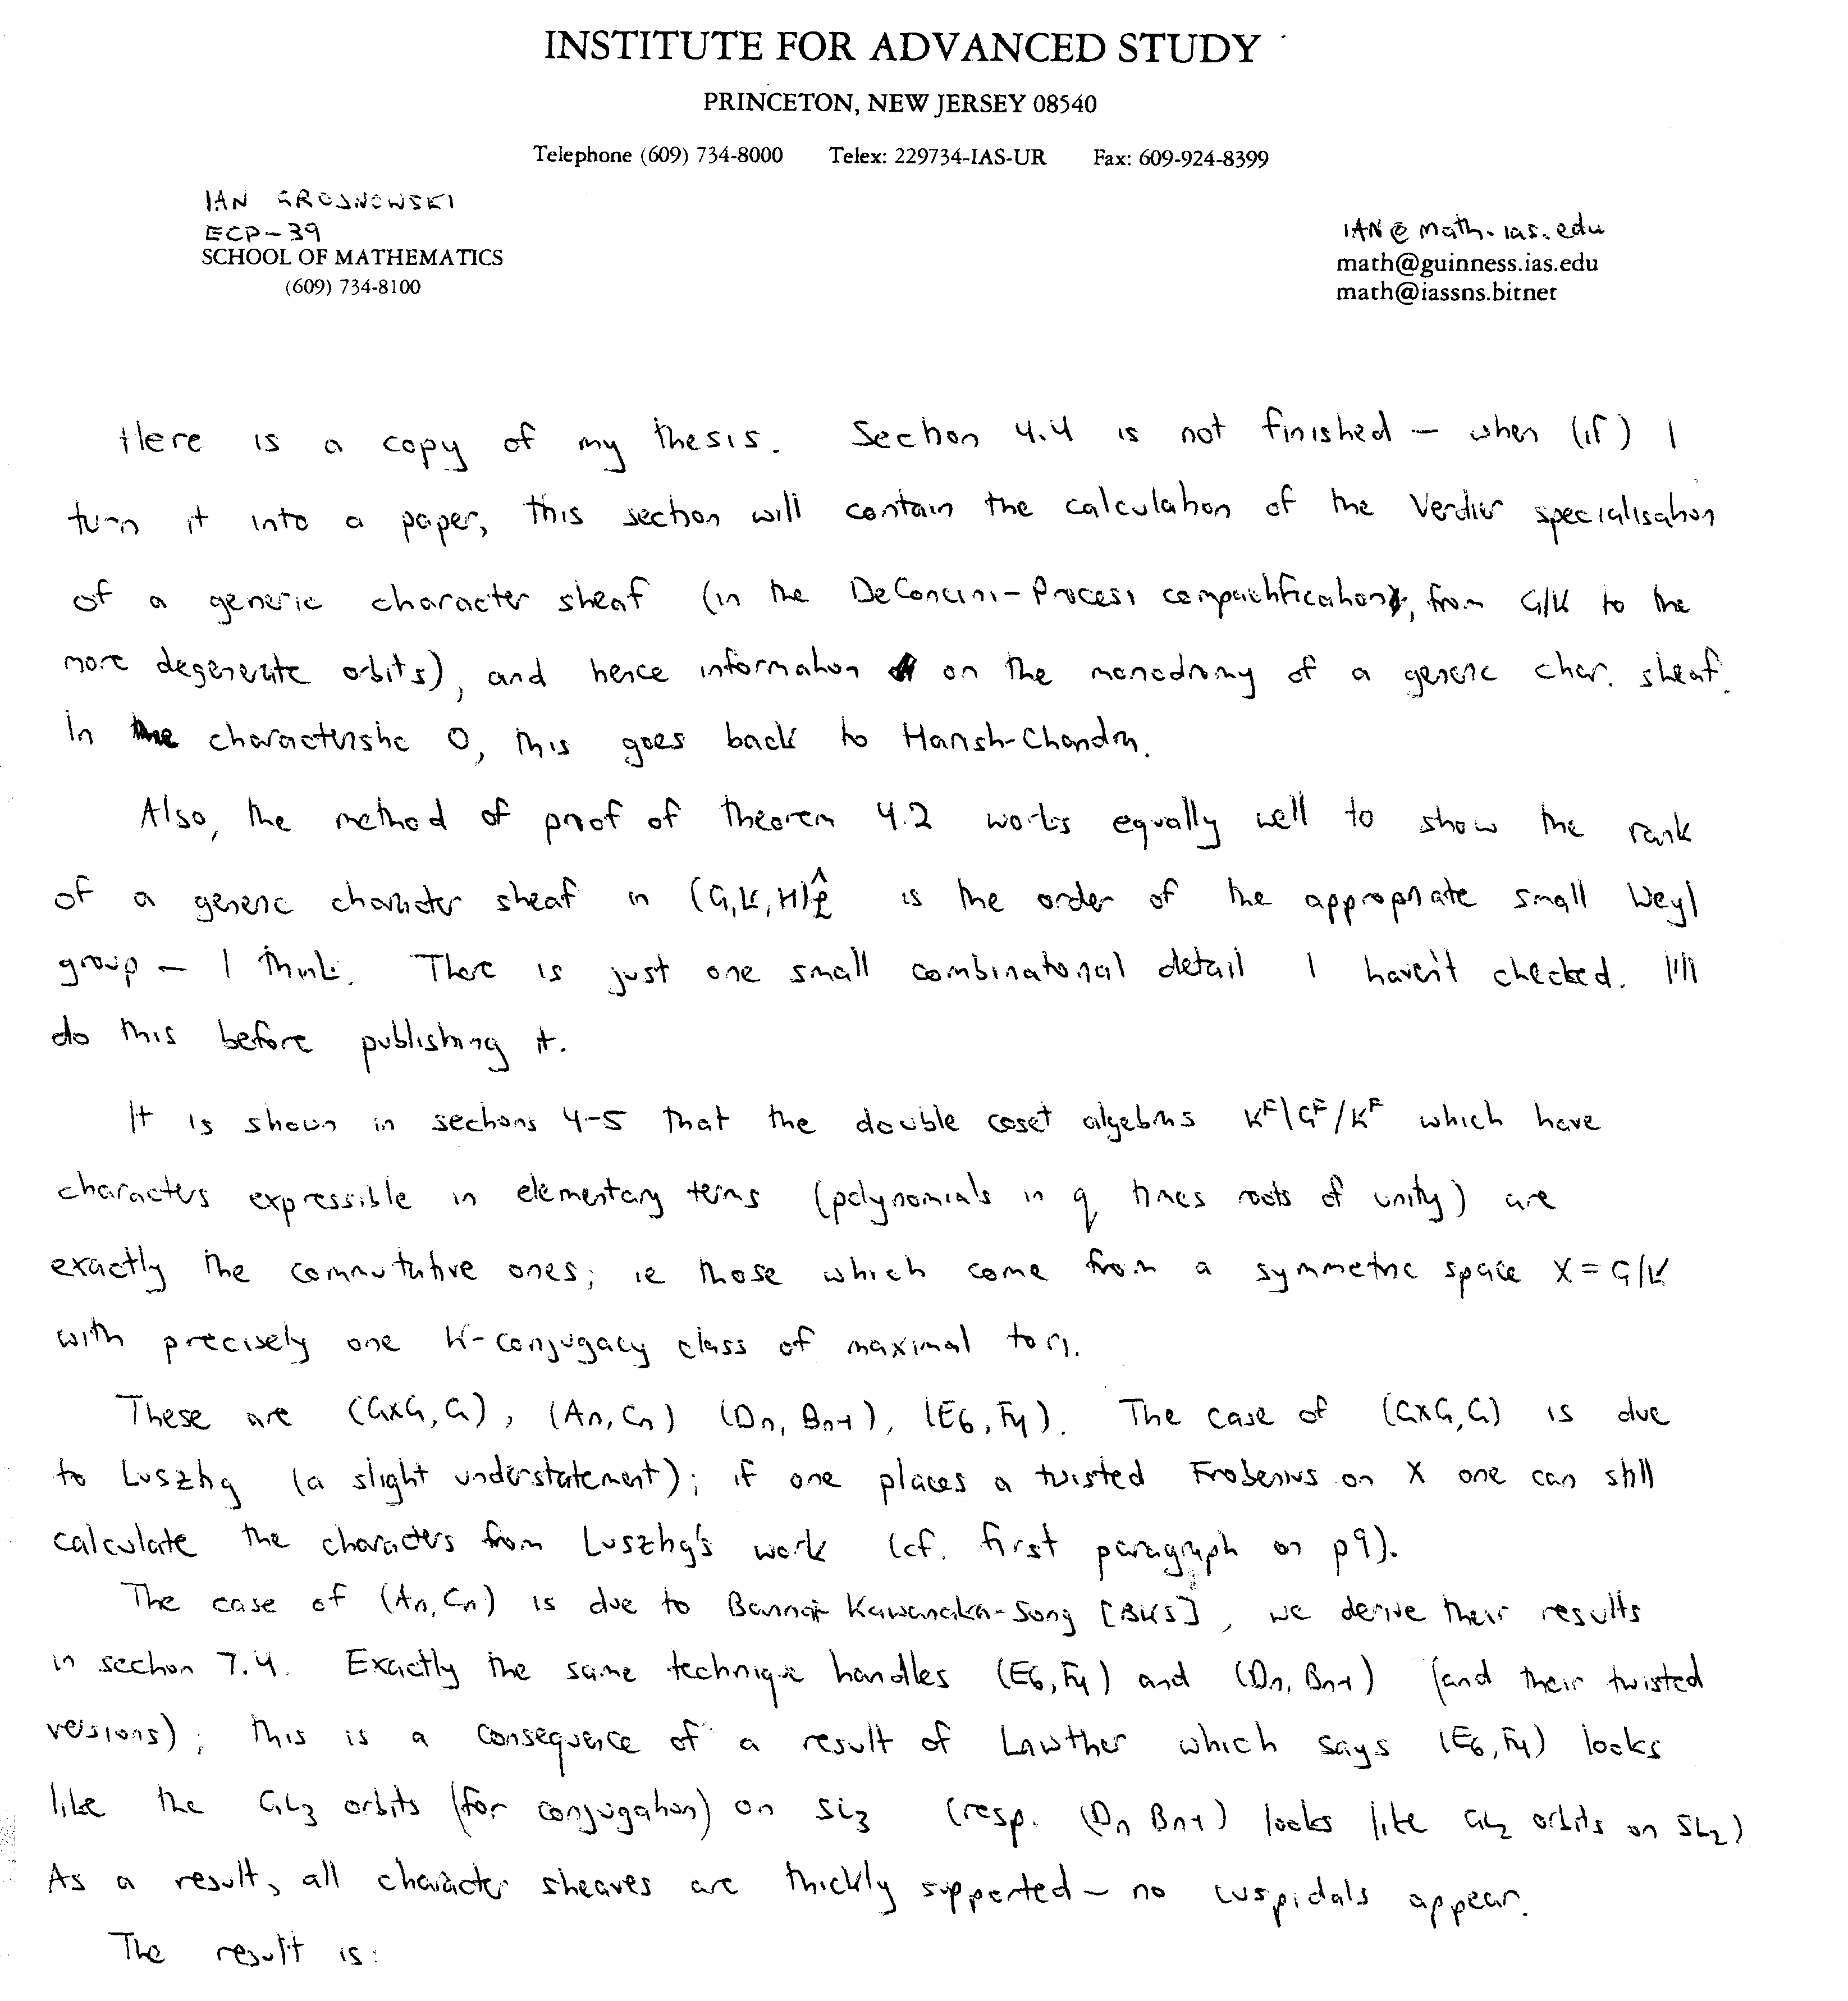 INSTITUTE FOR ADVANCED STUDY
PRINCETON, NEW JERSEY 08540
Telephone (609) 734-8000 Telex: 229734-IAS-UR Fax: 609-924-8399
IAN GROJNOWSKI
ECP-39
SCHOOL OF MATHEMATICS
(609) 734-8100
IAN@math.ias.edu
math@guinness.ias.edu
math@iassns.bitnet
Here is a copy of my thesis. Section 4.4 is not finished — when (if) I
turn it into a paper, this section will contain the calculation of the Verdier specialisation
of a generic character sheaf (in the DeConcini-Procesi compactification, from G/K to the
more degenerate orbits), and hence information on the monodromy of a generic char. sheaf.
In characteristic 0, this goes back to Harish-Chandra.
Also, the method of proof of theorem 4.2 works equally well to show the rank
of a generic character sheaf in (G,K,H)^_L is the order of the appropriate small Weyl
group — I think. There is just one small combinatorial detail I haven't checked. I'll
do this before publishing it.
It is shown in sections 4-5 that the double coset algebras K^F\G^F/K^F which have
characters expressible in elementary terms (polynomials in q times roots of unity) are
exactly the commutative ones; ie those which come from a symmetric space X = G/K
with precisely one K-conjugacy class of maximal tori.
These are (G×G, G), (An, Cn) (Dn, Bn-1), (E6, F4). The case of (G×G, G) is due
to Lusztig (a slight understatement); if one places a twisted Frobenius on X one can still
calculate the characters from Lusztig's work (cf. first paragraph on p9).
The case of (An, Cn) is due to Bannai-Kawanaka-Song [BKS], we derive their results
in section 7.4. Exactly the same technique handles (E6, F4) and (Dn, Bn-1) (and their twisted
versions); this is a consequence of a result of Lawther which says (E6, F4) looks
like the GL3 orbits (for conjugation) on SL3 (resp. (Dn Bn-1) looks like GL2 orbits on SL2)
As a result, all character sheaves are thickly supported — no cuspidals appear.
The result is: